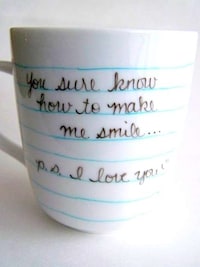 you sure know
how to make
me smile...
p.s. I love you